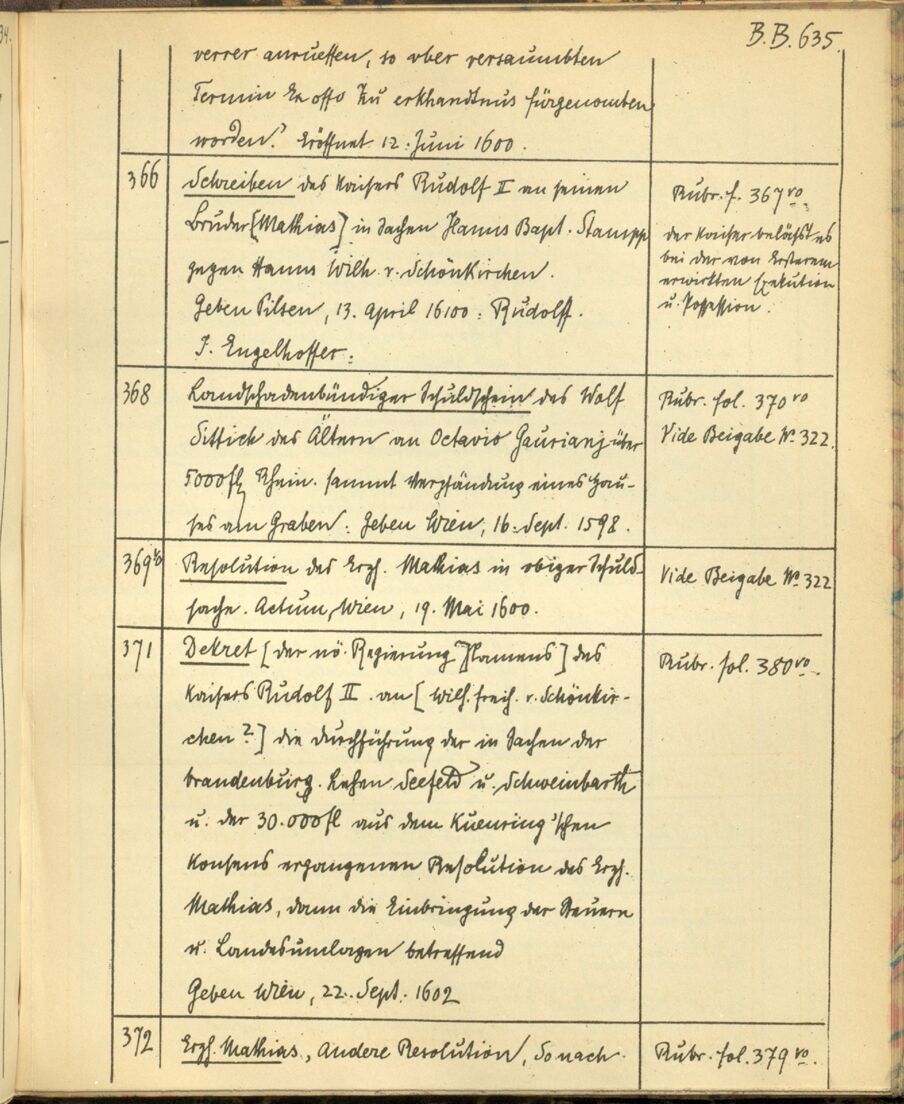 B.B. 635.
verrer anrueffen, so vber versaumbten
Termin Ex offo zu erkhandtnus fürgenomben
worden? Eröffnet 12. Juni 1600.
366
Schreiben des Kaisers Rudolf II an seinen
Bruder [Mathias] in Sachen Hanns Bapt. Stampp
gegen Hanns Wilh. v. Schönkirchen.
Geben Pilsen, 13. April 16100: Rudolff.
J. Engelhoffer:
Rubr. f. 367 vo.
der Kaiser beläßt es
bei der von Ersterem
erwirkten Exekution
u. Possession.
368
Landschadenbündiger Schuldschein des Wolf
Sittich des Ältern an Octavio Gaurianj über
5000 fl Rhein. sammt Verpfändung eines Hau-
ses am Graben. Geben Wien, 16. Sept. 1598.
Rubr. fol. 370 vo
Vide Beigabe No. 322.
369
Resolution des Erzh. Mathias in obiger Schuld-
sache. Actum, Wien, 19. Mai 1600.
Vide Beigabe No 322
371
Dekret [der nö. Regierung Namens] des
Kaisers Rudolf II. an [Wilh. freih. v. Schönkir-
chen?] die Durchführung der in Sachen der
brandenburg. Lehen Seefeld u. Schweinbarth
u. der 30.000 fl aus dem Kuenring'schen
Konsens ergangenen Resolution des Erzh.
Mathias, dann die Einbringung der Steuern
u. Landesumlagen betreffend
Geben Wien, 22. Sept. 1602
Rubr. fol. 380 vo.
372
Erzh. Mathias, Andere Resolution, Sonach
Rubr. fol. 379 vo.